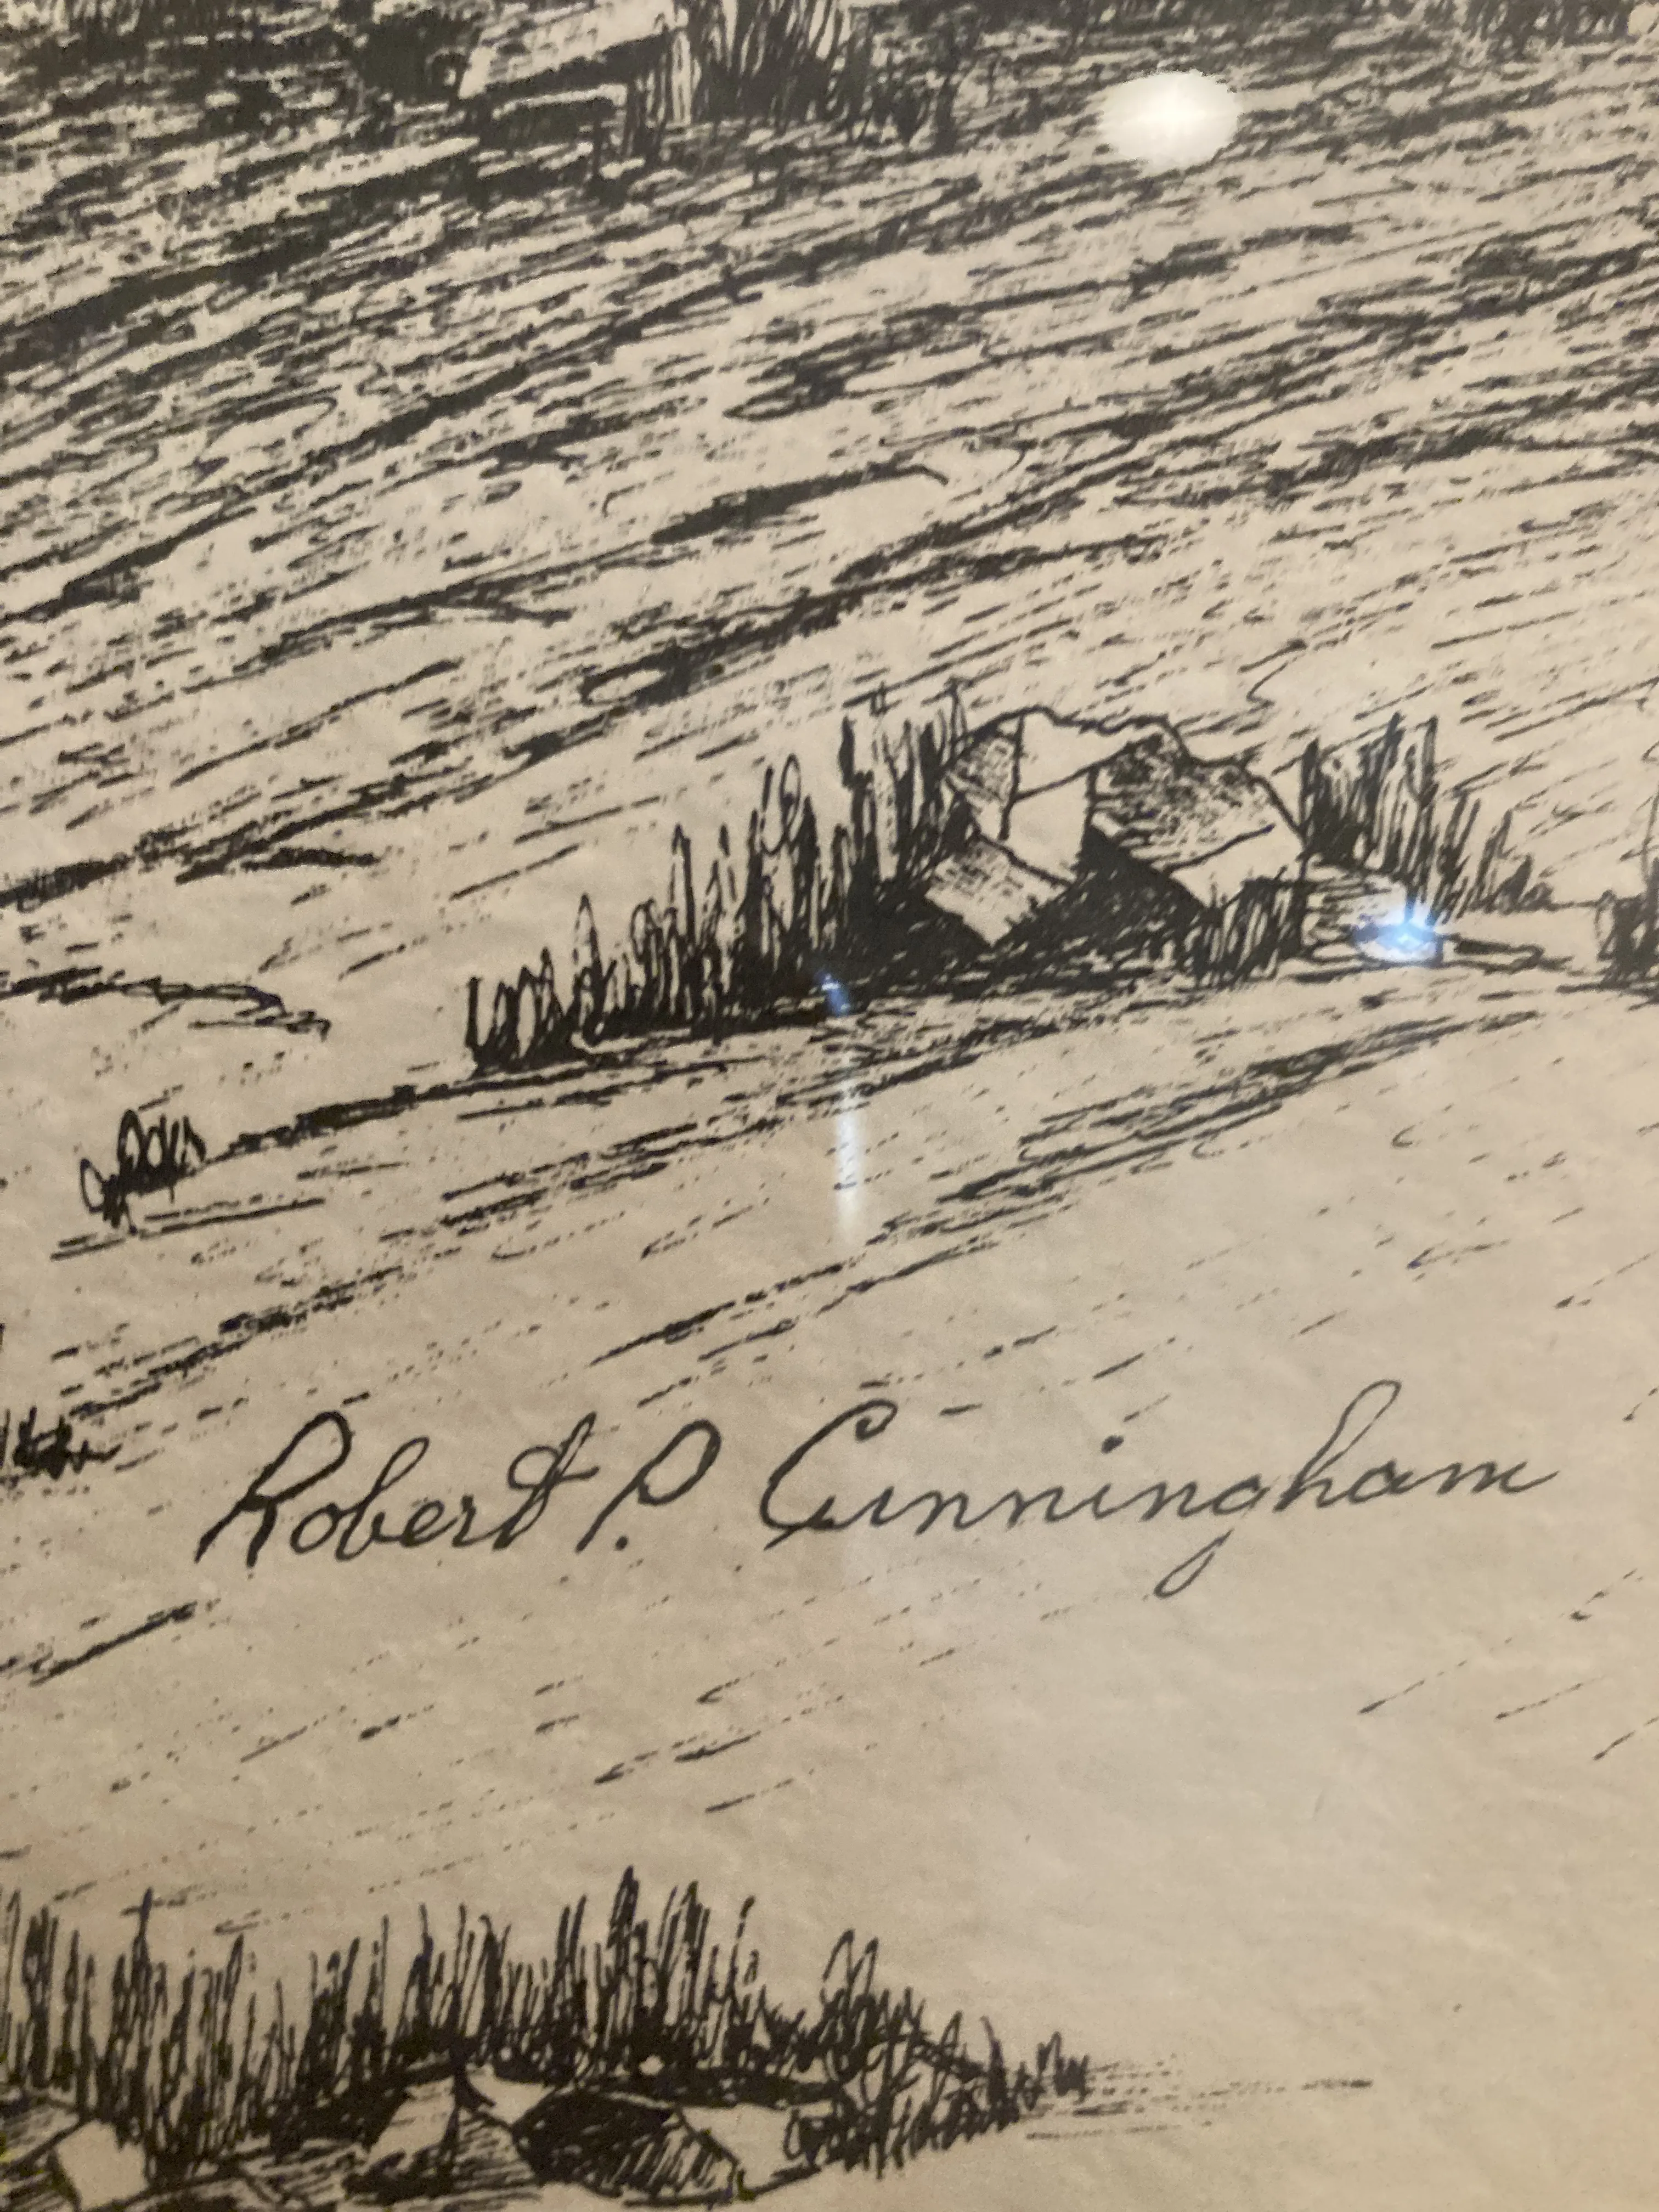 Robert P. Cunningham